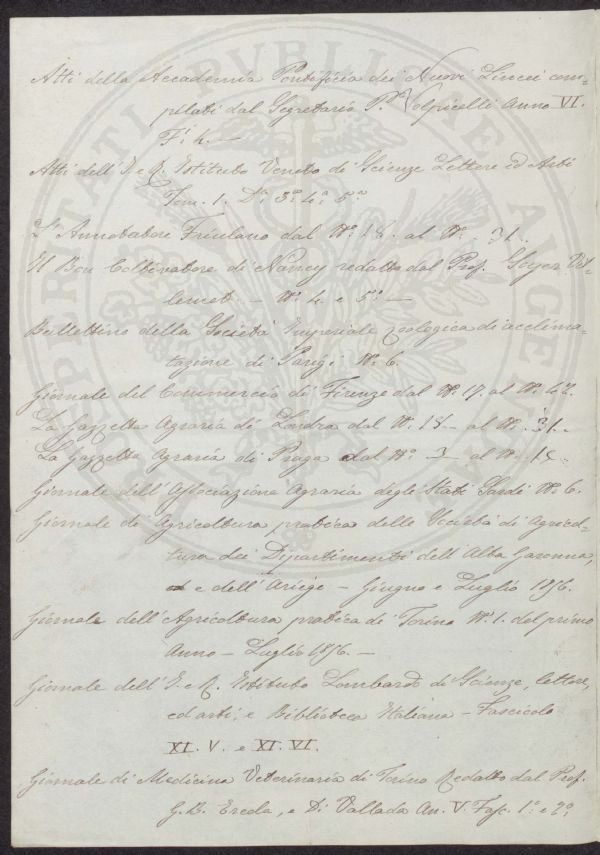 PROSPERITATI PVBLICAE AVGENDAE
Atti della Accademia Pontificia dei Nuovi Lincei com=
pilati dal Segretario P. Volpicelli Anno VI.
F.i 4. —
Atti dell'I. e R. Istituto Veneto di Scienze Lettere ed Arti
Tom. 1. D.a 3.a 4.a 5.a
L'Annotatore Friulano dal N.o 18. al N. 31.
Il Bon Coltivatore di Nancy redatto dal Prof.
— N.o 4. e 5.o —
Bullettino della Società Imperiale zoologica di acclima=
tazione di Parigi N.o 6.
Giornale del Commercio di Firenze dal N.o 17. al N.o 42.
La Gazzetta Agraria di Londra dal N. 18 — al N. 31.
La Gazzetta Agraria di Praga dal N.o 3 al N. 18.
Giornale dell'Associazione Agraria degli Stati Sardi N.o 6.
Giornale di Agricoltura pratica della Società di Agricol=
tura dei Dipartimenti dell'Alta Garonna,
e dell'Ariege — Giugno e Luglio 1856.
Giornale dell'Agricoltura pratica di Torino N.o 1. del primo
Anno — Luglio 1856. —
Giornale dell'I. e R. Istituto Lombardo di Scienze, lettere,
ed arti; e Biblioteca Italiana — Fascicolo
XI. V. e XI. VI.
Giornale di Medicina Veterinaria di Torino Redatto dal Prof.
G.B. Ercola, e Di Vallada An. V. Fasc. 1.o e 2.o